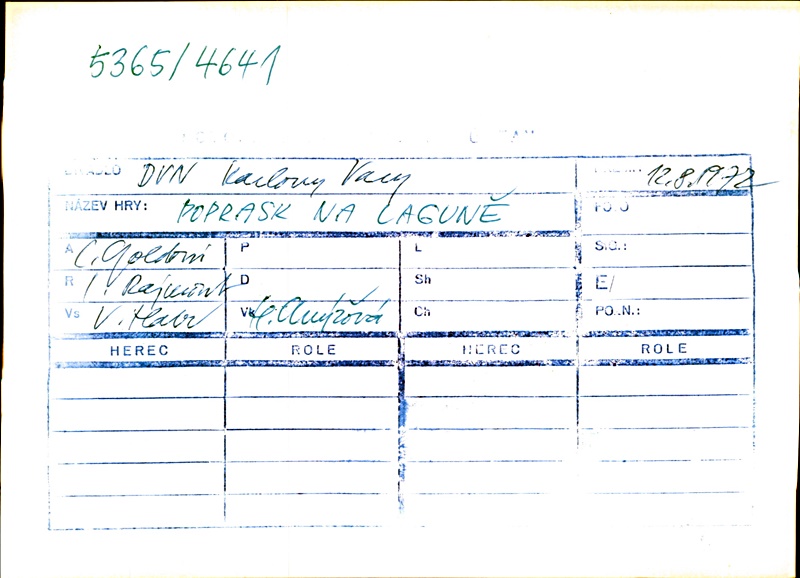 5365/4641
DIVADLO DVN Karlovy Vary 12.8.1972
NÁZEV HRY: POPRASK NA LAGUNĚ
A C. Goldoni P L SIG.:
R I. Rajmont D Sh E/
Vs V. Habr Vk H. Chmýřová Ch PO.N.:
HEREC ROLE HEREC ROLE